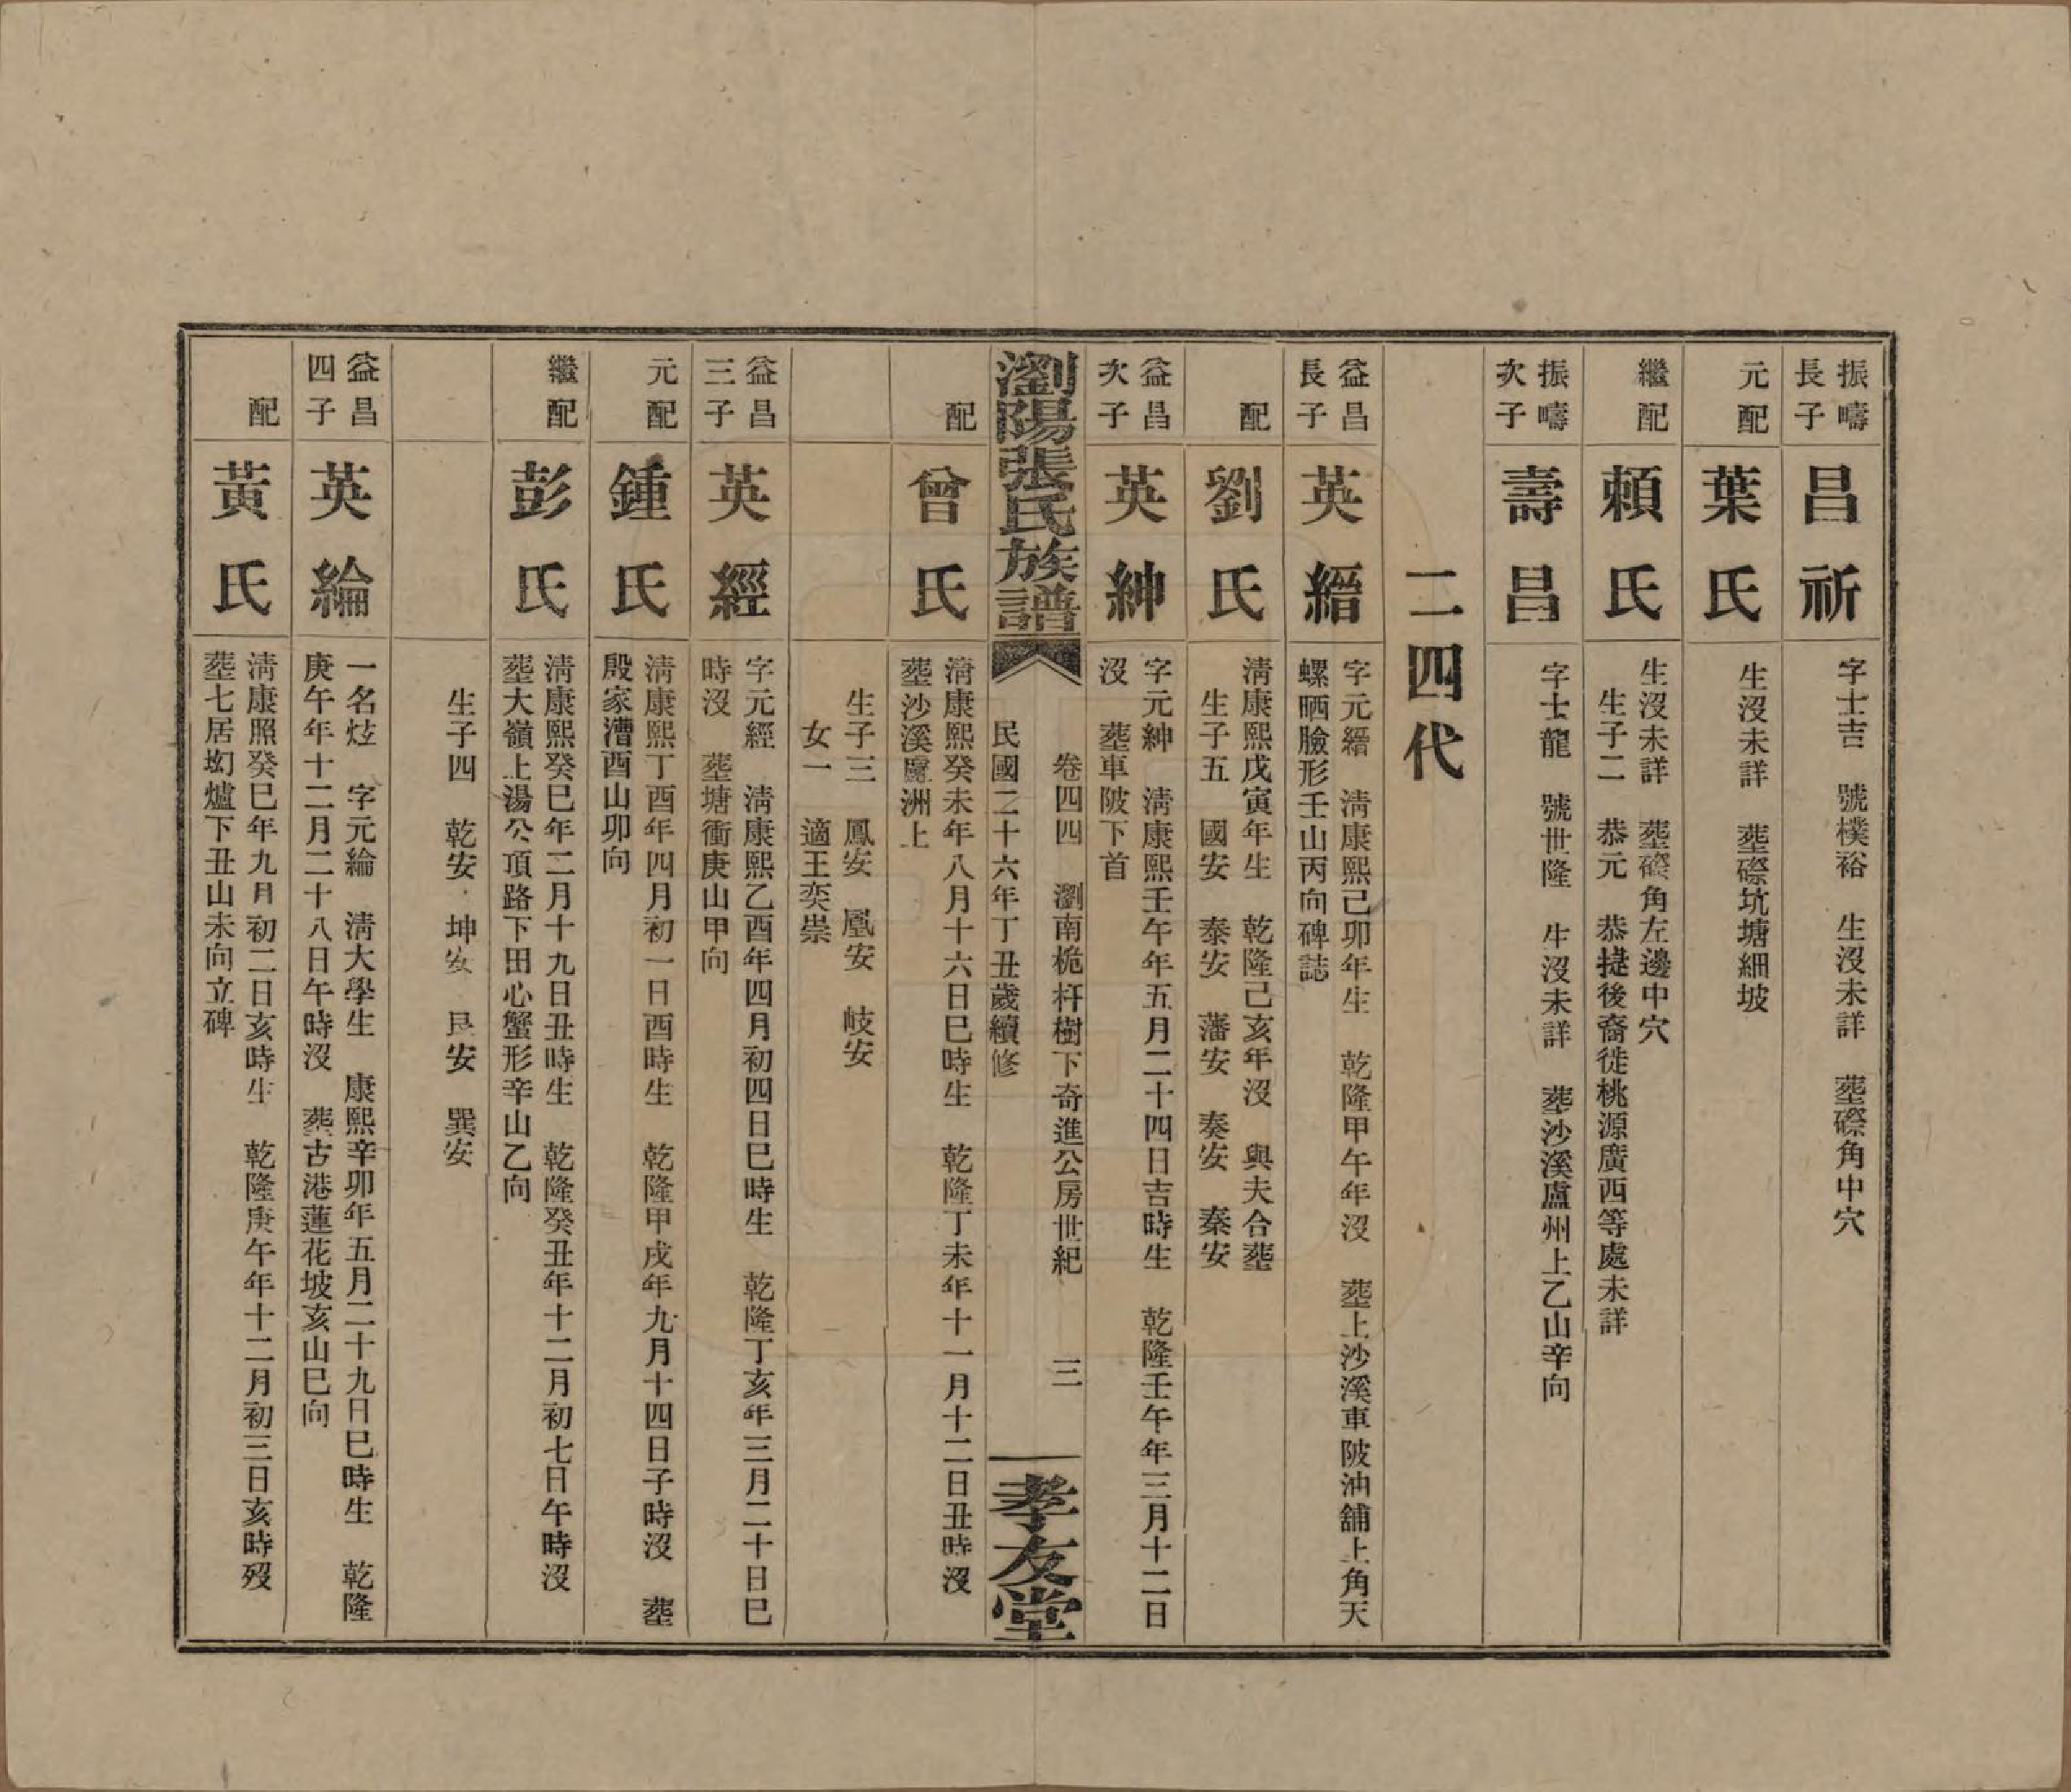 振疇
長子
昌祈
字士吉　號樸裕　生沒未詳　塟磜角中穴
元配
葉氏
生沒未詳　塟磜坑塘細坡
繼配
賴氏
生沒未詳　塟磜角左邊中穴
生子二　恭元　恭捷後裔徙桃源廣西等處未詳
振疇
次子
壽昌
字士龍　號世隆　生沒未詳　塟沙溪盧州上乙山辛向
二四代
益昌
長子
英縉
字元縉　淸康熙己卯年生　乾隆甲午年沒　塟上沙溪車陂油舖上角天
螺晒臉形壬山丙向碑誌
配
劉氏
淸康熙戊寅年生　乾隆己亥年沒　與夫合塟
生子五　國安　泰安　藩安　奏安　秦安
益昌
次子
英紳
字元紳　淸康熙壬午年五月二十四日吉時生　乾隆壬午年三月十二日
沒　塟車陂下首
瀏陽張氏族譜
卷四四　瀏南桅杆樹下奇進公房世紀　三
民國二十六年丁丑歲續修
孝友堂
配
曾氏
淸康熙癸未年八月十六日巳時生　乾隆丁未年十一月十二日丑時沒
塟沙溪廬洲上
生子三　鳳安　凰安　岐安
女一　適王奕崇
益昌
三子
英經
字元經　淸康熙乙酉年四月初四日巳時生　乾隆丁亥年三月二十日巳
時沒　塟塘衝庚山甲向
元配
鍾氏
淸康熙丁酉年四月初一日酉時生　乾隆甲戌年九月十四日子時沒　塟
殷家漕酉山卯向
繼配
彭氏
淸康熙癸巳年二月十九日丑時生　乾隆癸丑年十二月初七日午時沒
塟大嶺上湯公頂路下田心蟹形辛山乙向
生子四　乾安　坤安　艮安　巽安
益昌
四子
英綸
一名炫　字元綸　淸大學生　康熙辛卯年五月二十九日巳時生　乾隆
庚午年十二月二十八日午時沒　塟古港蓮花坡亥山巳向
配
黃氏
淸康照癸巳年九月初二日亥時生　乾隆庚午年十二月初三日亥時歿
塟七居㘭爐下丑山未向立碑